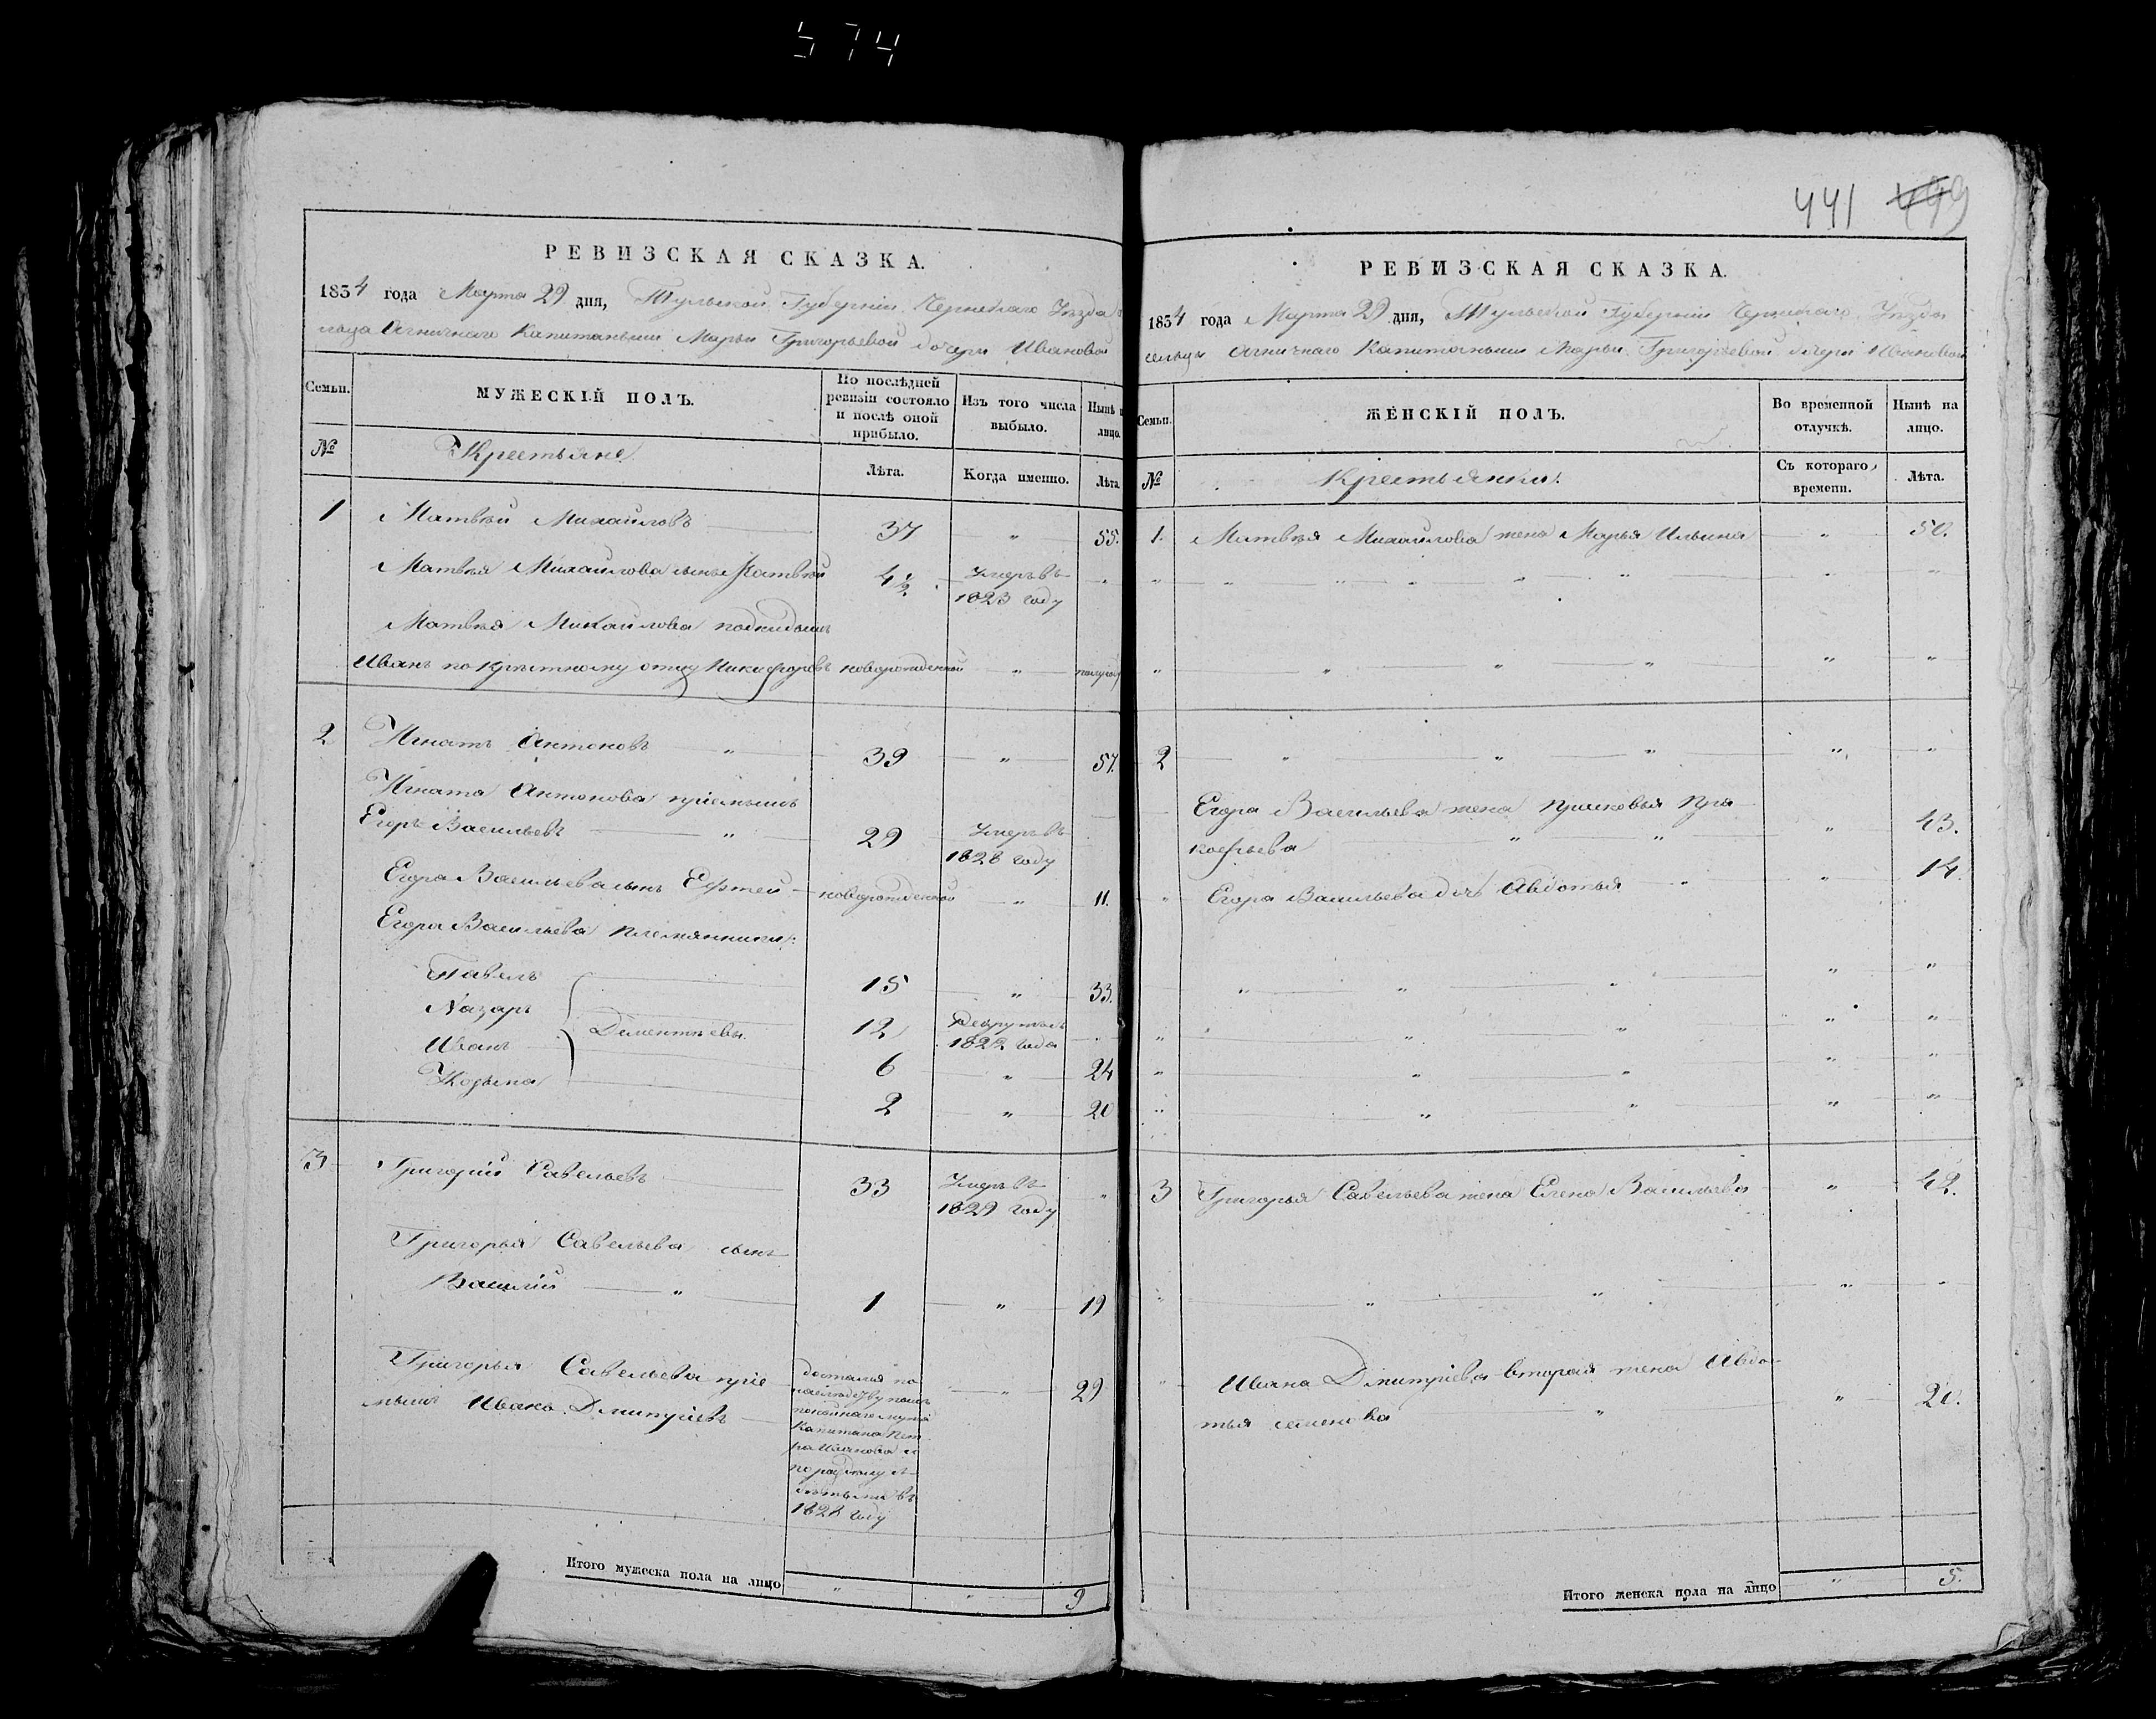 574
РЕВИЗСКАЯ СКАЗКА.
1834 года Марта 29 дня, Тульской Губерніи Чернскаго Уѣзда
сельца Огничнаго Капитанши Марьи Григорьевой дочери Ивановой
Семьи.
МУЖЕСКІЙ ПОЛЪ.
По послѣдней ревизіи состояло и послѣ оной прибыло.
Изъ того числа выбыло.
Нынѣ
лицо.
№
Крестьяне
Лѣта.
Когда именно.
Лѣта
1 Матвѣй Михайловъ 37 " 55.
Матвѣя Михайлова сынъ Матвѣй 4½ Умеръ въ
1823 году
Матвѣя Михайлова подкидышъ
Иванъ по крестному отцу Никифоровъ новорожденной " полугоду
2 Игнатъ Антоновъ " 39 " 57.
Игната Антонова пріемышъ
Егоръ Васильевъ " 29 Умеръ въ
1828 году
Егора Васильева сынъ Ефтей новорожденной " 11.
Егора Васильева племянники:
Павелъ 15 " 33.
Назаръ 12 Рекрутъ
1822 года
Дементьевы
Иванъ 6 " 24
Козьма 2 " 20
3 Григорій Савельевъ 33 Умеръ въ "
1829 году
Григорья Савельева сынъ
Василій " 1 " 19
Григорья Савельева пріе
мышъ Иванъ Дмитріевъ
" 29
достался по
наслѣдству
покойнаго мужа
Капитана Пет
ра Иванова и
по раздѣлу съ
дѣтьми въ
1828 году
Итого мужеска пола на лицо " " 9
441 499
РЕВИЗСКАЯ СКАЗКА.
1834 года Марта 29 дня, Тульской Губерніи Чернскаго Уѣзда
сельца Огничнаго Капитанши Марьи Григорьевой дочери Ивановой
Семьи.
ЖЕНСКІЙ ПОЛЪ.
Во временной отлучкѣ.
Нынѣ на лицо.
№
Крестьянки.
Съ котораго времени.
Лѣта.
1. Матвѣя Михайлова жена Марья Ильина " 50.
" " " " " " " "
" " " " " "
2 " " " " "
Егора Васильева жена Прасковья Про
кофьева " " " 43.
" Егора Васильева дочь Авдотья " " 14.
" " " " "
" " " " " "
" " " " "
" " " " "
3 Григорья Савельева жена Елена Васильева " 42.
" " " " "
" Ивана Дмитріева вторая жена Авдо
тья Семенова " " 20.
Итого женска пола на лицо " 5.